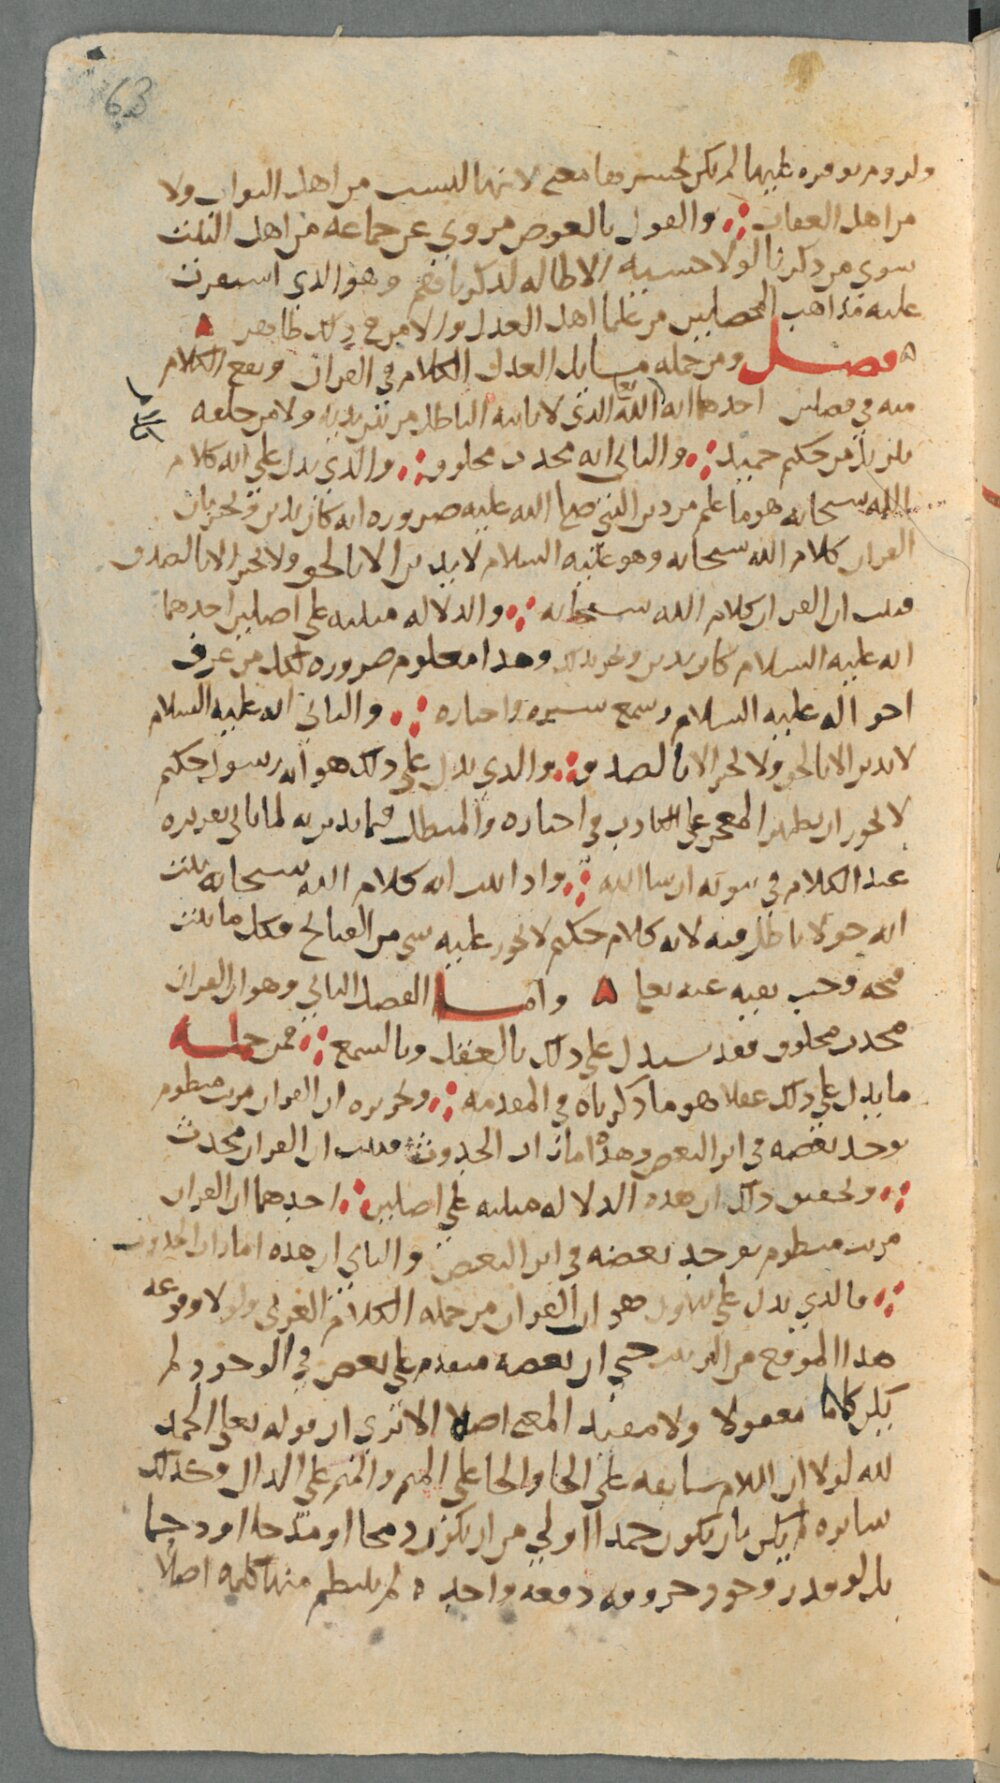 63
ولو لم يوفره عليها لم يكن لحشرها معنى لانها ليست من اهل الثواب ولا
من اهل العقاب والقول بالعوض مروي عن جماعه من اهل البيت
سوى من ذكرنا لولا خشية الاطاله لذكرناهم وهو الذي استقرت
عليه مذاهب المحصلين من علما اهل العدل والامر في ذلك ظاهر
فصل ومن جمله مسايل العدل الكلام في القران ويقع الكلام
منه في فصلين احدهما انه الله الذي لا ياتيه الباطل من بين يديه ولا من خلفه
تنزيل من حكيم حميد والثاني انه محدث مخلوق والذي يدل على انه كلام
الله سبحانه هو ما علم من دين النبي صلى الله عليه ضروره انه كان يدين ويخبر بان
القران كلام الله سبحانه وهو عليه السلام لا يدين الا بالحق ولا يخبر الا بالصدق
فثبت ان القران كلام الله سبحانه والدلاله مبنيه على اصلين احدهما
انه عليه السلام كان يدين ويخبر بذلك وهذا معلوم ضروره لكل من عرف
احواله عليه السلام وسمع سيره واخباره والثاني انه عليه السلام
لا يدين الا بالحق ولا يخبر الا بالصدق والذي يدل على ذلك هو انه رسول حكيم
لا يجوز ان يظهر المعجز على الكاذب في اخباره والمبطل فيما يدين به لما ياتي تقريره
عند الكلام في نبوته ان شا الله واذا ثبت انه كلام الله سبحانه ثبت
انه حق لا باطل فيه لانه كلام حكيم لا يجوز عليه شي من القبائح فكل ما ثبت
قبحه وجب نفيه عنه تعالى واما الفصل الثاني وهو ان القران
محدث مخلوق فقد يستدل على ذلك بالعقل وبالسمع فمن جمله
ما يدل على ذلك عقلا هو ما ذكرناه في المقدمه وتحريره ان القران مرتب منظوم
يوجد بعضه في اثر البعض وهذه امارات الحدوث فثبت ان القران محدث
وتحقيق ذلك ان هذه الدلاله مبنيه على اصلين احدهما ان القران
مرتب منظوم يوجد بعضه في اثر البعض والثاني ان هذه امارات الحدوث
فالذي يدل على الاول هو ان القران من جمله الكلام العربي ولولا وقوعه
هذا الموقع من الترتيب حتى ان بعضه متقدم على بعض في الوجود لم
يكن كلاما معقولا ولا مفيد المعنى اصلا الا ترى ان قوله تعالى الحمد
لله لولا ان اللام سابقه على الحا والحا على الميم والميم على الدال وكذلك
سايره لم يكن بان يكون حمدا اولى من ان يكون دمحا او مدحا او دحما
بل لو قدر وجود حروفه دفعه واحده لم ينتظم منها كلمه اصلا